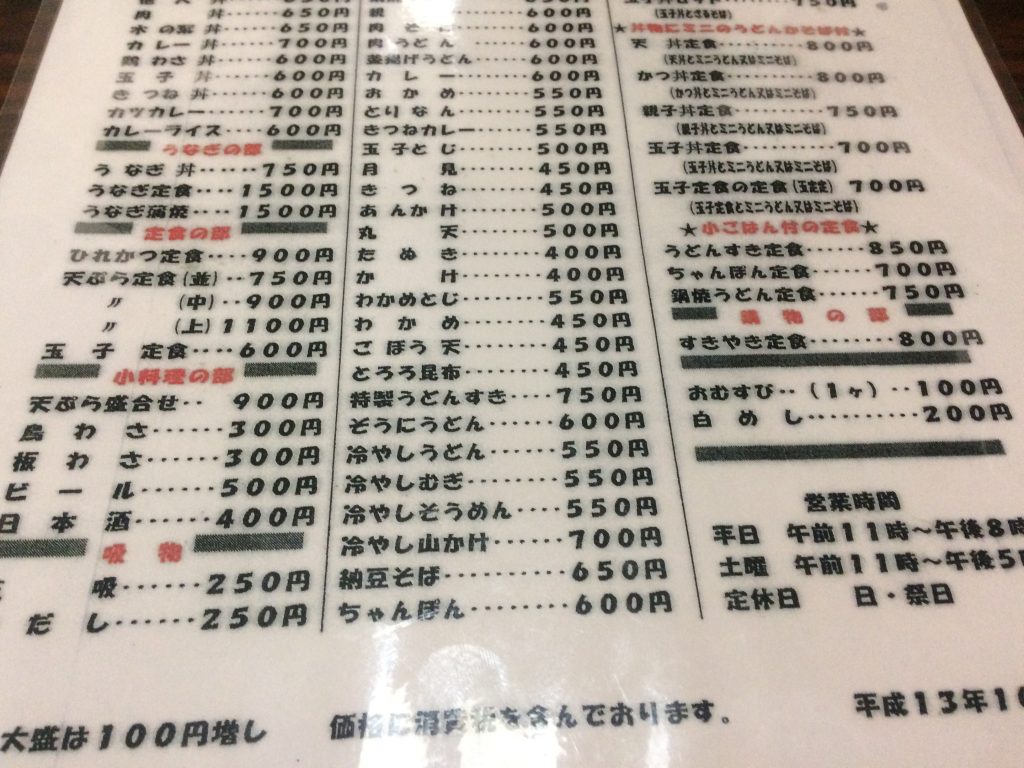 肉 丼‥‥650円
木の葉 丼‥‥650円
カレー 丼‥‥700円
鶏わさ 丼‥‥600円
玉子 丼‥‥600円
きつね 丼‥‥600円
カツカレー‥‥700円
カレーライス‥‥600円
うなぎの部
うなぎ丼‥‥750円
うなぎ定食‥‥1500円
うなぎ蒲焼‥‥1500円
定食の部
ひれかつ定食‥‥900円
天ぷら定食(並)‥‥750円
〃 (中)‥‥900円
〃 (上)1100円
玉子 定食‥‥600円
小料理の部
天ぷら盛合せ‥‥900円
鳥わさ‥‥‥300円
板わさ‥‥‥300円
ビール‥‥‥500円
日本酒‥‥‥400円
吸物
吸‥‥‥250円
だし‥‥‥250円
親‥‥600円
肉そば‥‥600円
肉うどん‥‥600円
釜揚げうどん‥‥600円
カレー‥‥600円
おかめ‥‥550円
とりなん‥‥550円
きつねカレー‥‥550円
玉子とじ‥‥500円
月見‥‥450円
きつね‥‥450円
あんか汁‥‥500円
丸天‥‥500円
たぬき‥‥400円
か汁‥‥400円
わかめとじ‥‥550円
わかめ‥‥450円
ごぼう天‥‥450円
とろろ昆布‥‥450円
特製うどんすき‥‥750円
ぞうにうどん‥‥600円
冷やしうどん‥‥550円
冷やしむぎ‥‥550円
冷やしそうめん‥‥550円
冷やし山か汁‥‥700円
納豆そば‥‥650円
ちゃんぽん‥‥600円
750円
(玉子丼とざるそば)
★丼物にミニのうどんかそば付★
天 丼定食‥‥‥800円
(天丼とミニうどん又はミニそば)
かつ丼定食‥‥‥800円
(かつ丼とミニうどん又はミニそば)
親子丼定食‥‥‥750円
(親子丼とミニうどん又はミニそば)
玉子丼定食‥‥‥700円
(玉子丼とミニうどん又はミニそば)
玉子定食の定食(玉定定) 700円
(玉子定食とミニうどん又はミニそば)
★小ごはん付の定食★
うどんすき定食‥‥‥850円
ちゃんぽん定食‥‥‥700円
鍋焼うどん定食‥‥‥750円
鍋物の部
すきやき定食‥‥‥‥800円
おむすび‥(1ヶ)‥100円
白めし‥‥‥‥‥200円
営業時間
平日 午前11時～午後8時
土曜 午前11時～午後5時
定休日 日・祭日
大盛は100円増し
価格に消費税を含んでおります。
平成13年10